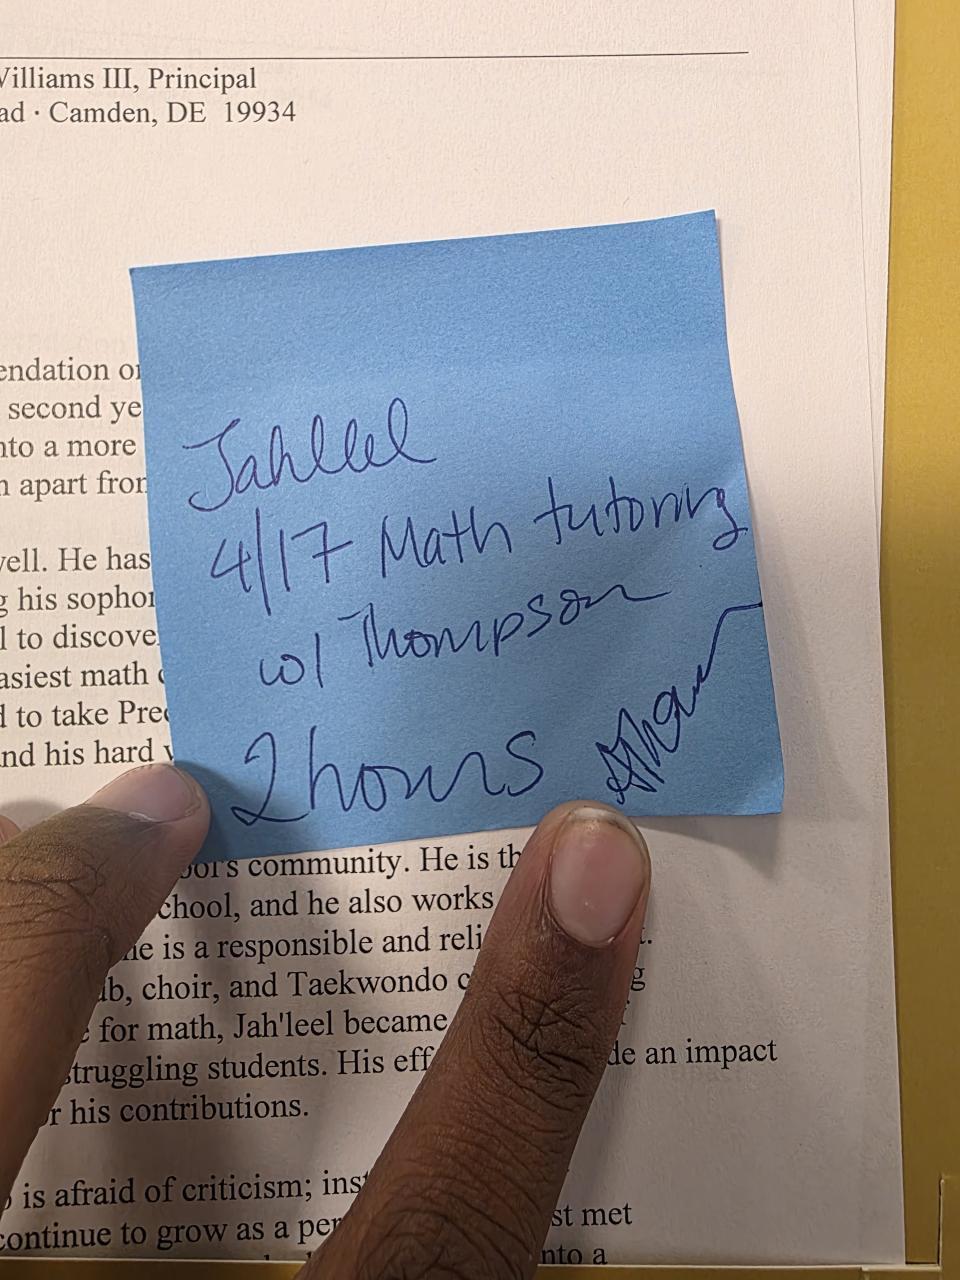 Williams III, Principal
ad · Camden, DE 19934
endation or
second ye
nto a more
n apart from
well. He has
g his sophor
l to discove
asiest math
d to take Prec
nd his hard
Jahlleel
4/17 Math tutoring
w/ Thompson
2 hours
ool's community. He is th
chool, and he also works
he is a responsible and reli
ub, choir, and Taekwondo c g
for math, Jah'leel became
struggling students. His eff de an impact
r his contributions.
is afraid of criticism; ins
continue to grow as a per st met
nto a